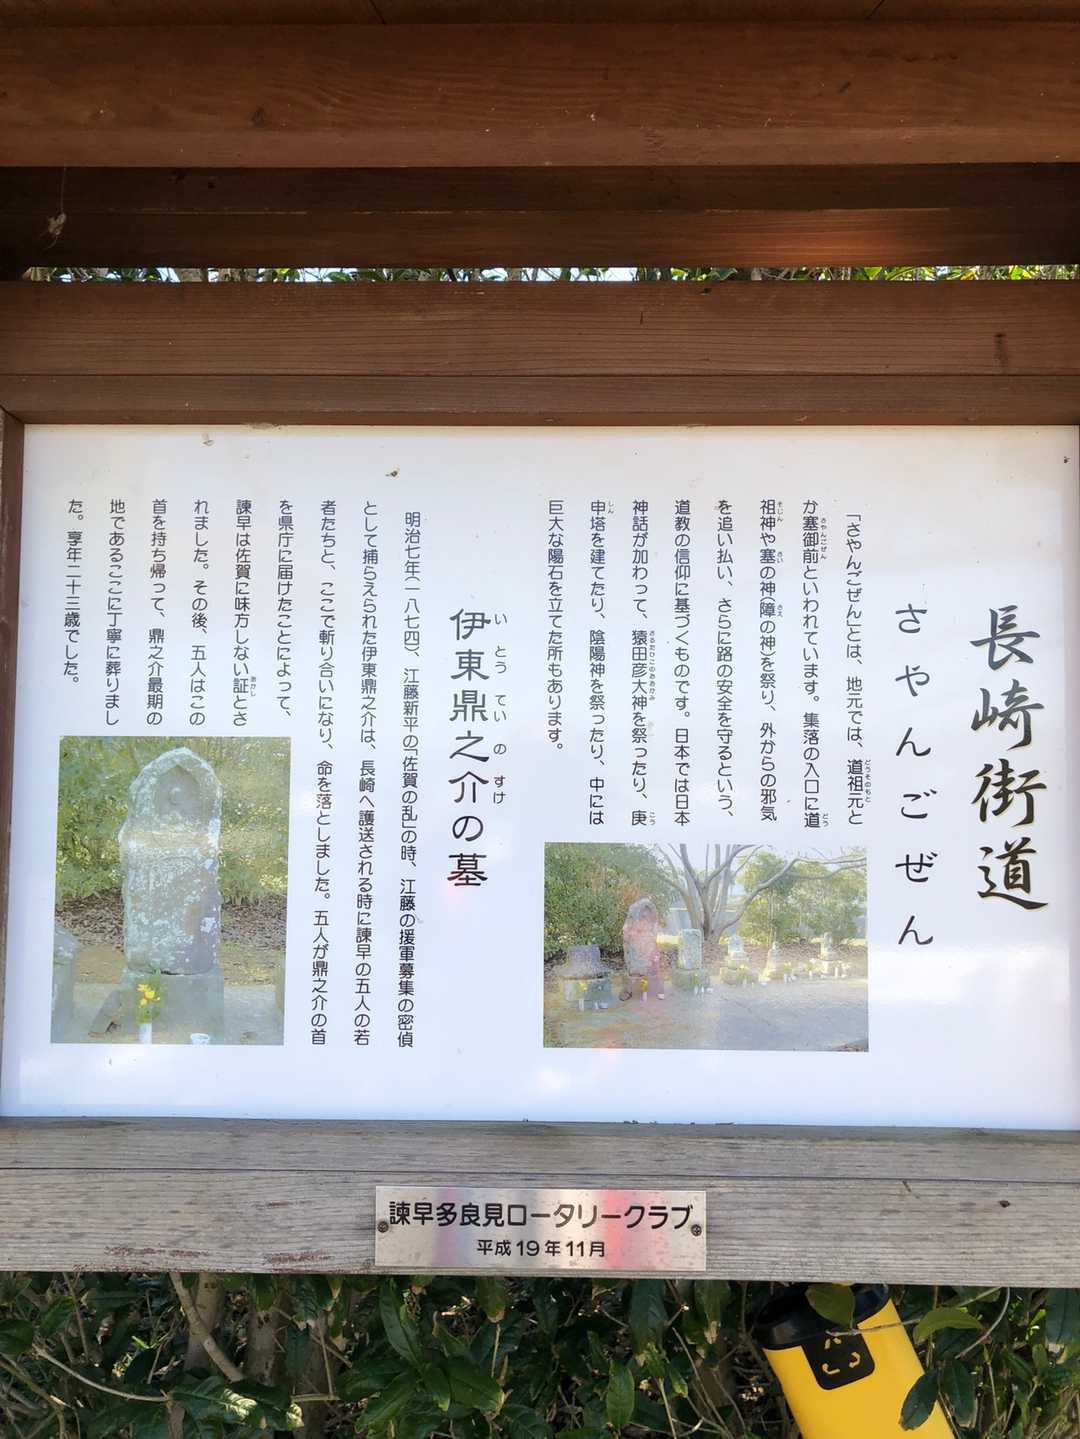 長崎街道
さやんごぜん
「さやんごぜん」とは、地元では、道祖元と
か塞御前といわれています。集落の入口に道
祖神や塞の神(障の神)を祭り、外からの邪気
を追い払い、さらに路の安全を守るという、
道教の信仰に基づくものです。日本では日本
神話が加わって、猿田彦大神を祭ったり、庚
申塔を建てたり、陰陽神を祭ったり、中には
巨大な陽石を立てた所もあります。
伊東鼎之介の墓
いとうていのすけ
明治七年(一八七四)、江藤新平の「佐賀の乱」の時、江藤の援軍募集の密偵
として捕らえられた伊東鼎之介は、長崎へ護送される時に諫早の五人の若
者たちと、ここで斬り合いになり、命を落としました。五人が鼎之介の首
を県庁に届けたことによって、
諫早は佐賀に味方しない証とさ
れました。その後、五人はこの
首を持ち帰って、鼎之介最期の
地であるここに丁寧に葬りまし
た。享年二十三歳でした。
諫早多良見ロータリークラブ
平成19年11月